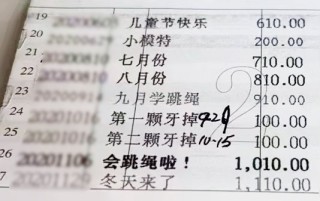 19 20200603 儿童节快乐 610.00
20 20200629 小模特 200.00
七月份 710.00
八月份 810.00
九月学跳绳 910.00
第一颗牙掉 100.00
20201016 第二颗牙掉 10-15 100.00
26 20201106 会跳绳啦！ 1,010.00
20201129 冬天来了 1,110.00
27
2